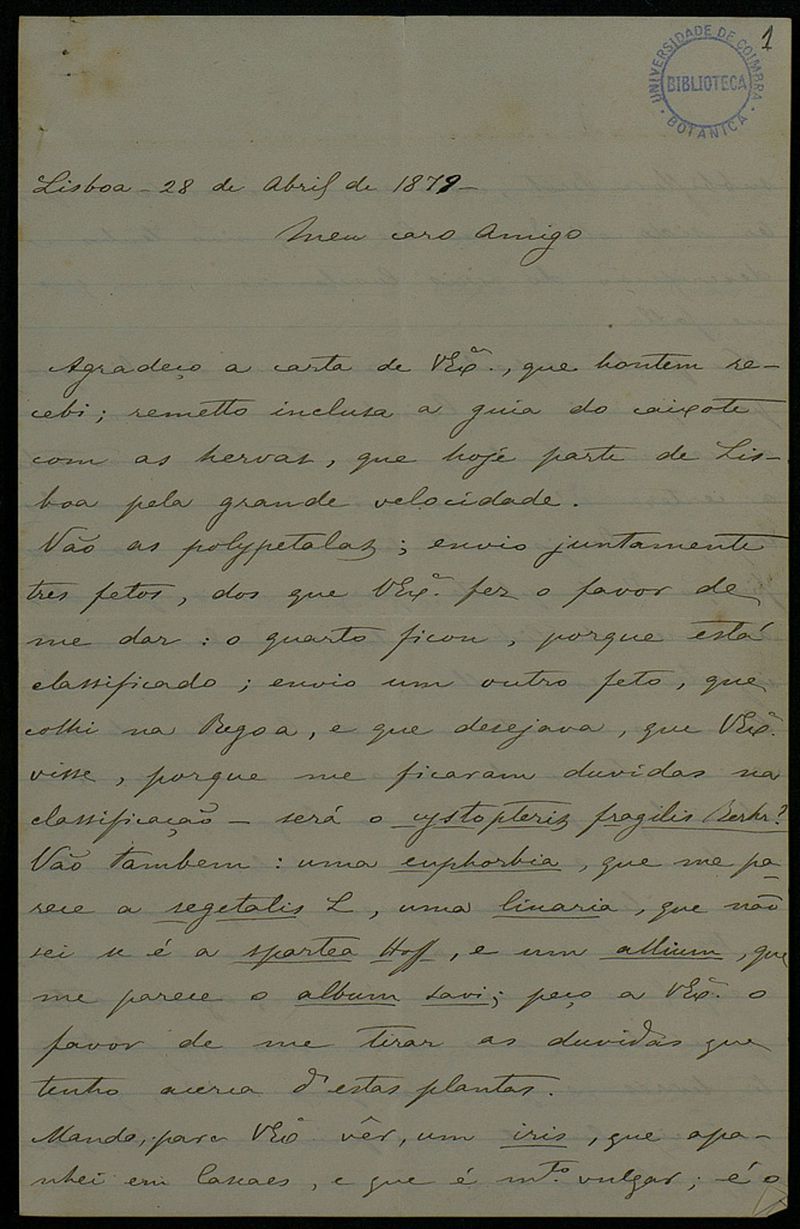 1
UNIVERSIDADE DE COIMBRA
BIBLIOTECA
BOTANICA
Lisboa - 28 de Abril de 1879 -
Meu caro Amigo
Agradeço a carta de VExª., que hontem re-
cebi; remetto inclusa a guia do caixote
com as hervas, que hoje parte de Lis-
boa pela grande velocidade.
Vão as polypetalas; envio juntamente
tres fetos, dos que VExª. fez o favor de
me dar: o quarto ficou, porque está
classificado; envio um outro feto, que
colhi na Regoa, e que desejava, que VExª.
visse, porque me ficaram duvidas na
classificação - será o cystopteris fragilis Bernh.?
Vão tambem: uma euphorbia, que me pa-
rece a segetalis L, uma linaria, que não
sei se é a spartea Hoff, e um allium, que
me parece o album savi; peço a VExª. o
favor de me tirar as duvidas que
tenho acerca d'estas plantas.
Mando, para VExª vêr, um iris, que apa-
nhei em Cascaes, e que é mto. vulgar; é o